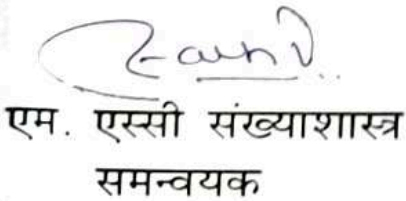 एम. एस्सी संख्याशास्त्र
समन्वयक